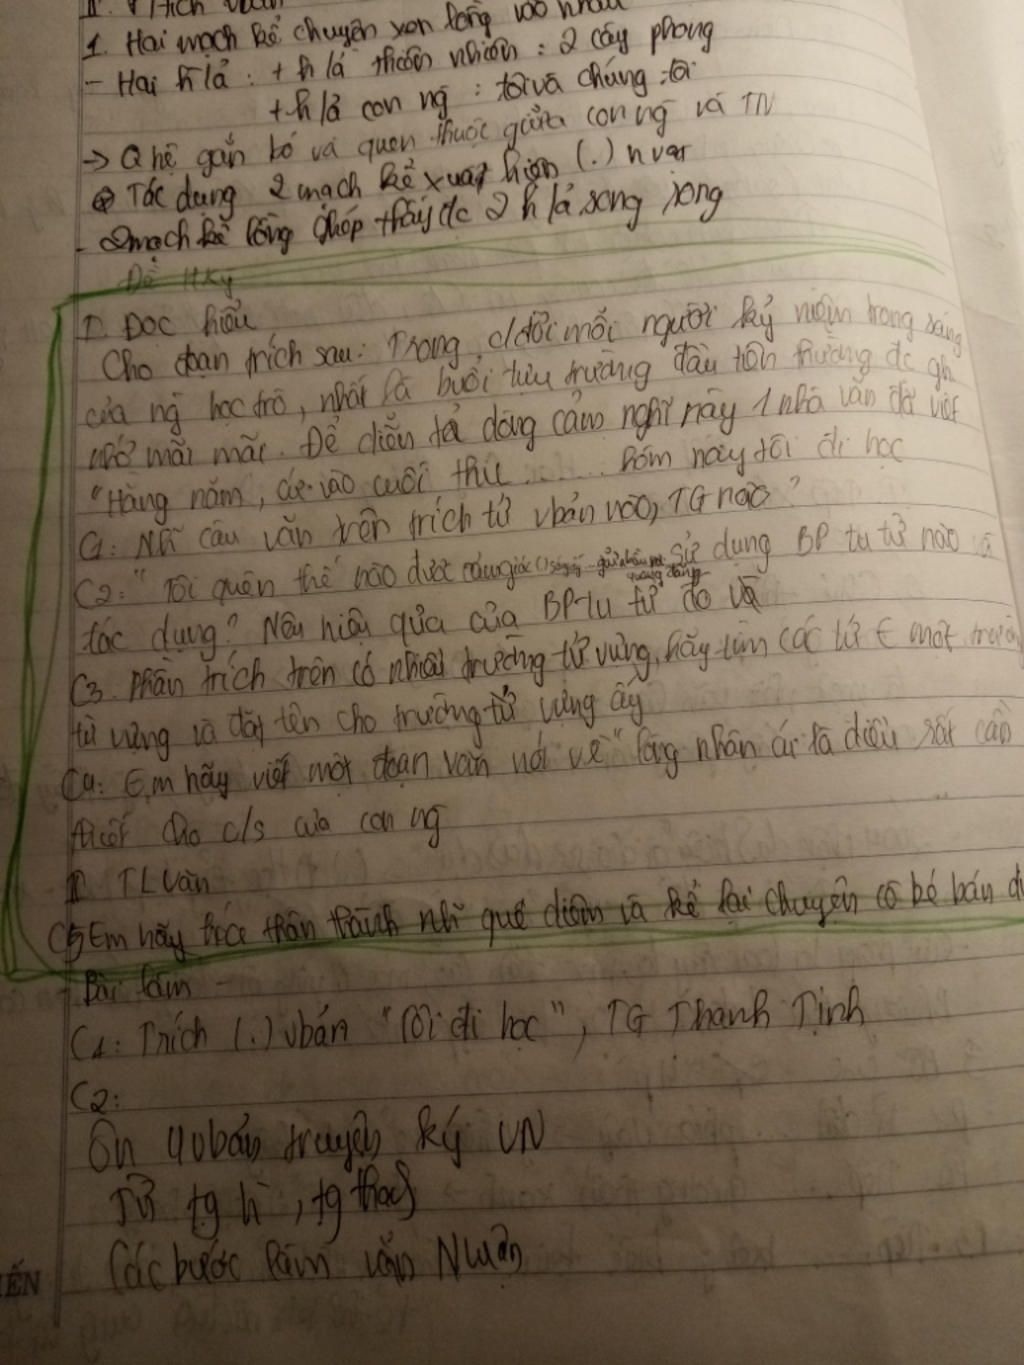 II. Phtích vbản
1. Hai mạch kể chuyện xen lồng vào nhau
- Hai h/ả : + h/ả thiên nhiên : 2 cây phong
+ h/ả con ng : tôi và chúng tôi
-> Q hệ gắn bó và quen thuộc giữa con ng và TN
Tác dụng 2 mạch kể xuất hiện (.)
- 2 mạch kể lồng ghép thấy đc 2 h/ả song song
Đề HKỳ
I. Đọc hiểu
Cho đoạn trích sau: Trong c/đời mỗi người kỷ niệm trong sáng
của ng học trò, nhất là buổi tựu trường đầu tiên thường đc ghi
nhớ mãi mãi. Để diễn tả dòng cảm nghĩ này 1 nhà văn đã viết
"Hàng năm, cứ vào cuối thu ........ hôm nay tôi đi học
C1: Nh~ câu văn trên trích từ vbản nào, TG nào?
C2: "Tôi quên thế nào được cảm giác (.) sáng ấy .. giữa bầu trời quang đãng Sử dụng BP tu từ nào
tác dụng? Nêu hiệu quả của BP tu từ đó
C3. Phần trích trên có nhiều trường từ vựng, hãy tìm các từ ∈ một trường
từ vựng và đặt tên cho trường từ vựng ấy
C4: Em hãy viết một đoạn văn nói về "lòng nhân ái là điều rất cần
thiết cho c/s của con ng
II TLVăn
C5 Em hãy hóa thân thành nh~ que diêm và kể lại chuyện cô bé bán
- Bài làm -
C1: Trích (.) vbản "Tôi đi học", TG Thanh Tịnh
C2:
Ôn 4 vbản truyện ký VN
Từ tg h`, tg thanh
Các bước làm văn